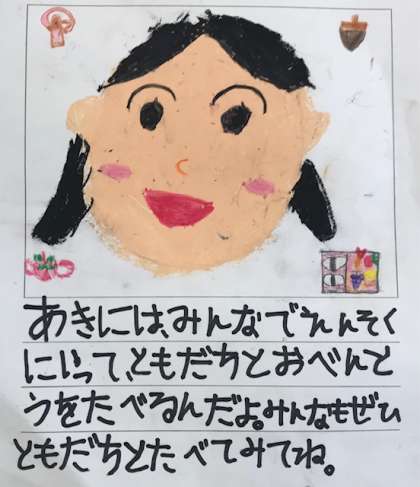 あきには、みんなでえんそく
にいって、ともだちとおべんと
うをたべるんだよ。みんなもぜひ
ともだちとたべてみてね。